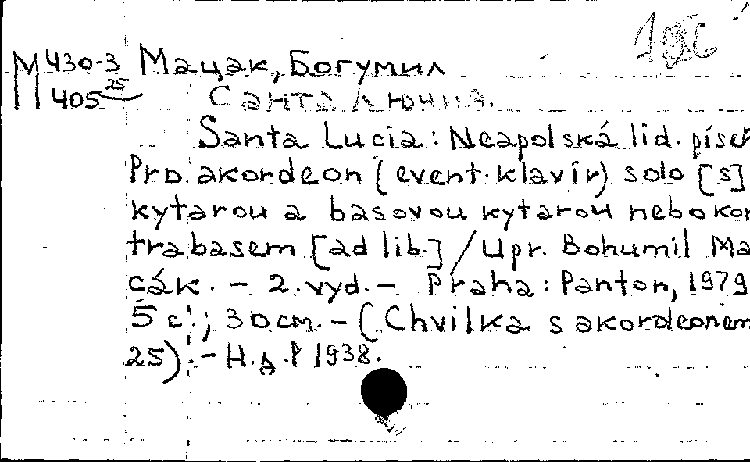 М430-3 Мацак, Богумил
405 25 Санта Лючия.
Santa Lucia: Neapolská lid. píseň
Pro akordeon (event. klavír) solo [s]
kytarou a basovou kytarou nebo kon
trabasem [ad lib.] / Upr. Bohumil Ma
cák. – 2. vyd. – Praha: Panton, 1979
5 с.; 30 см. – (Chvilka s akordeonem
25) – H. д. P 1938.